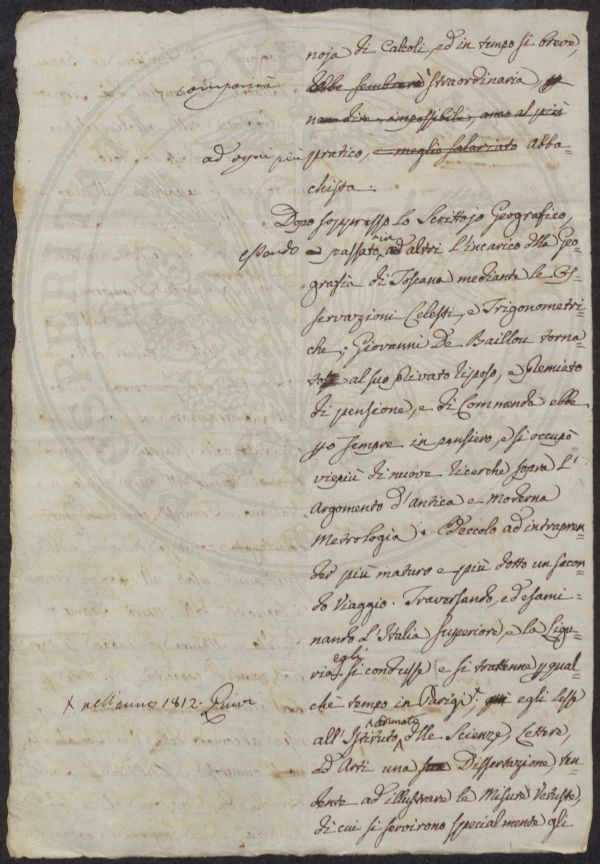 noja di Calcoli, ed in tempo sì breve,
comparirà
ebbe sembrare straordinaria,
non dire, impossibile, anco al più
ad ogni più
pratico, meglio salariato Abba-
chista.
Dopo soppresso lo Scrittojo Geografico,
essendo
e passato in ad altri l'incarico della Geo-
grafia di Toscana mediante le Os-
servazioni Celesti, e Trigonometri=
che; Giovanni De Baillou torna-
to al suo privato riposo, e premiato
di pensione, e di Commenda ebbe
sempre in pensiero, e si occupò
viepiù di nuove ricerche sopra l'
Argomento d'Antica e Moderna
Metrologia. Eccolo ad intrapren-
der più maturo e più dotto un secon-
do Viaggio. Traversando, ed esami-
nando l'Italia Superiore e la Ligu-
egli
ria si condusse e si trattenne qual
+ nell'anno 1812. Quivi
che tempo in Parigi + egli lesse
adunato
all'Istituto delle Scienze, Lettere,
ed Arti una Dissertazione, ten=
dente ad illustrare le Misure Vetuste,
di cui si servirono specialmente gli